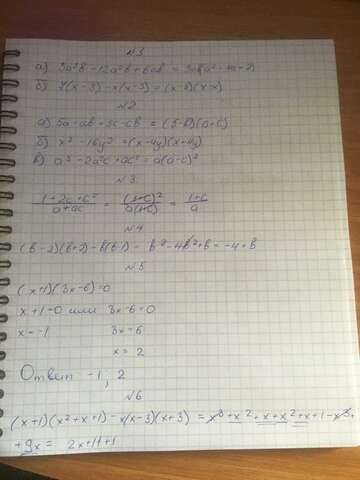 N1
а) 3a²b - 12a²b + 6ab = 3ab(a² - 4a - 2)
б) y(x-3) - x(x-3) = (x-3)(y-x)
N2
а) 5a - ab + 5c - cb = (5-b)(a+c)
б) x² - 16y² = (x-4y)(x+4y)
в) a³ - 2a²c + ac² = a(a-c)²
N3
(1+2c+c²)/(a+ac) = (1+c)²/(a(1+c)) = (1+c)/a
N4
(b-2)(b+2) - b(b-1) = b² - 4 - b² + b = -4 + b
N5
(x+1)(3x-6)=0
x+1=0 или 3x-6=0
x=-1 3x=6
x=2
Ответ -1, 2
N6
(x+1)(x²+x+1) - x(x-3)(x+3) = x³+x²+x+x²+x+1-x³+
+9x = 2x+11+1